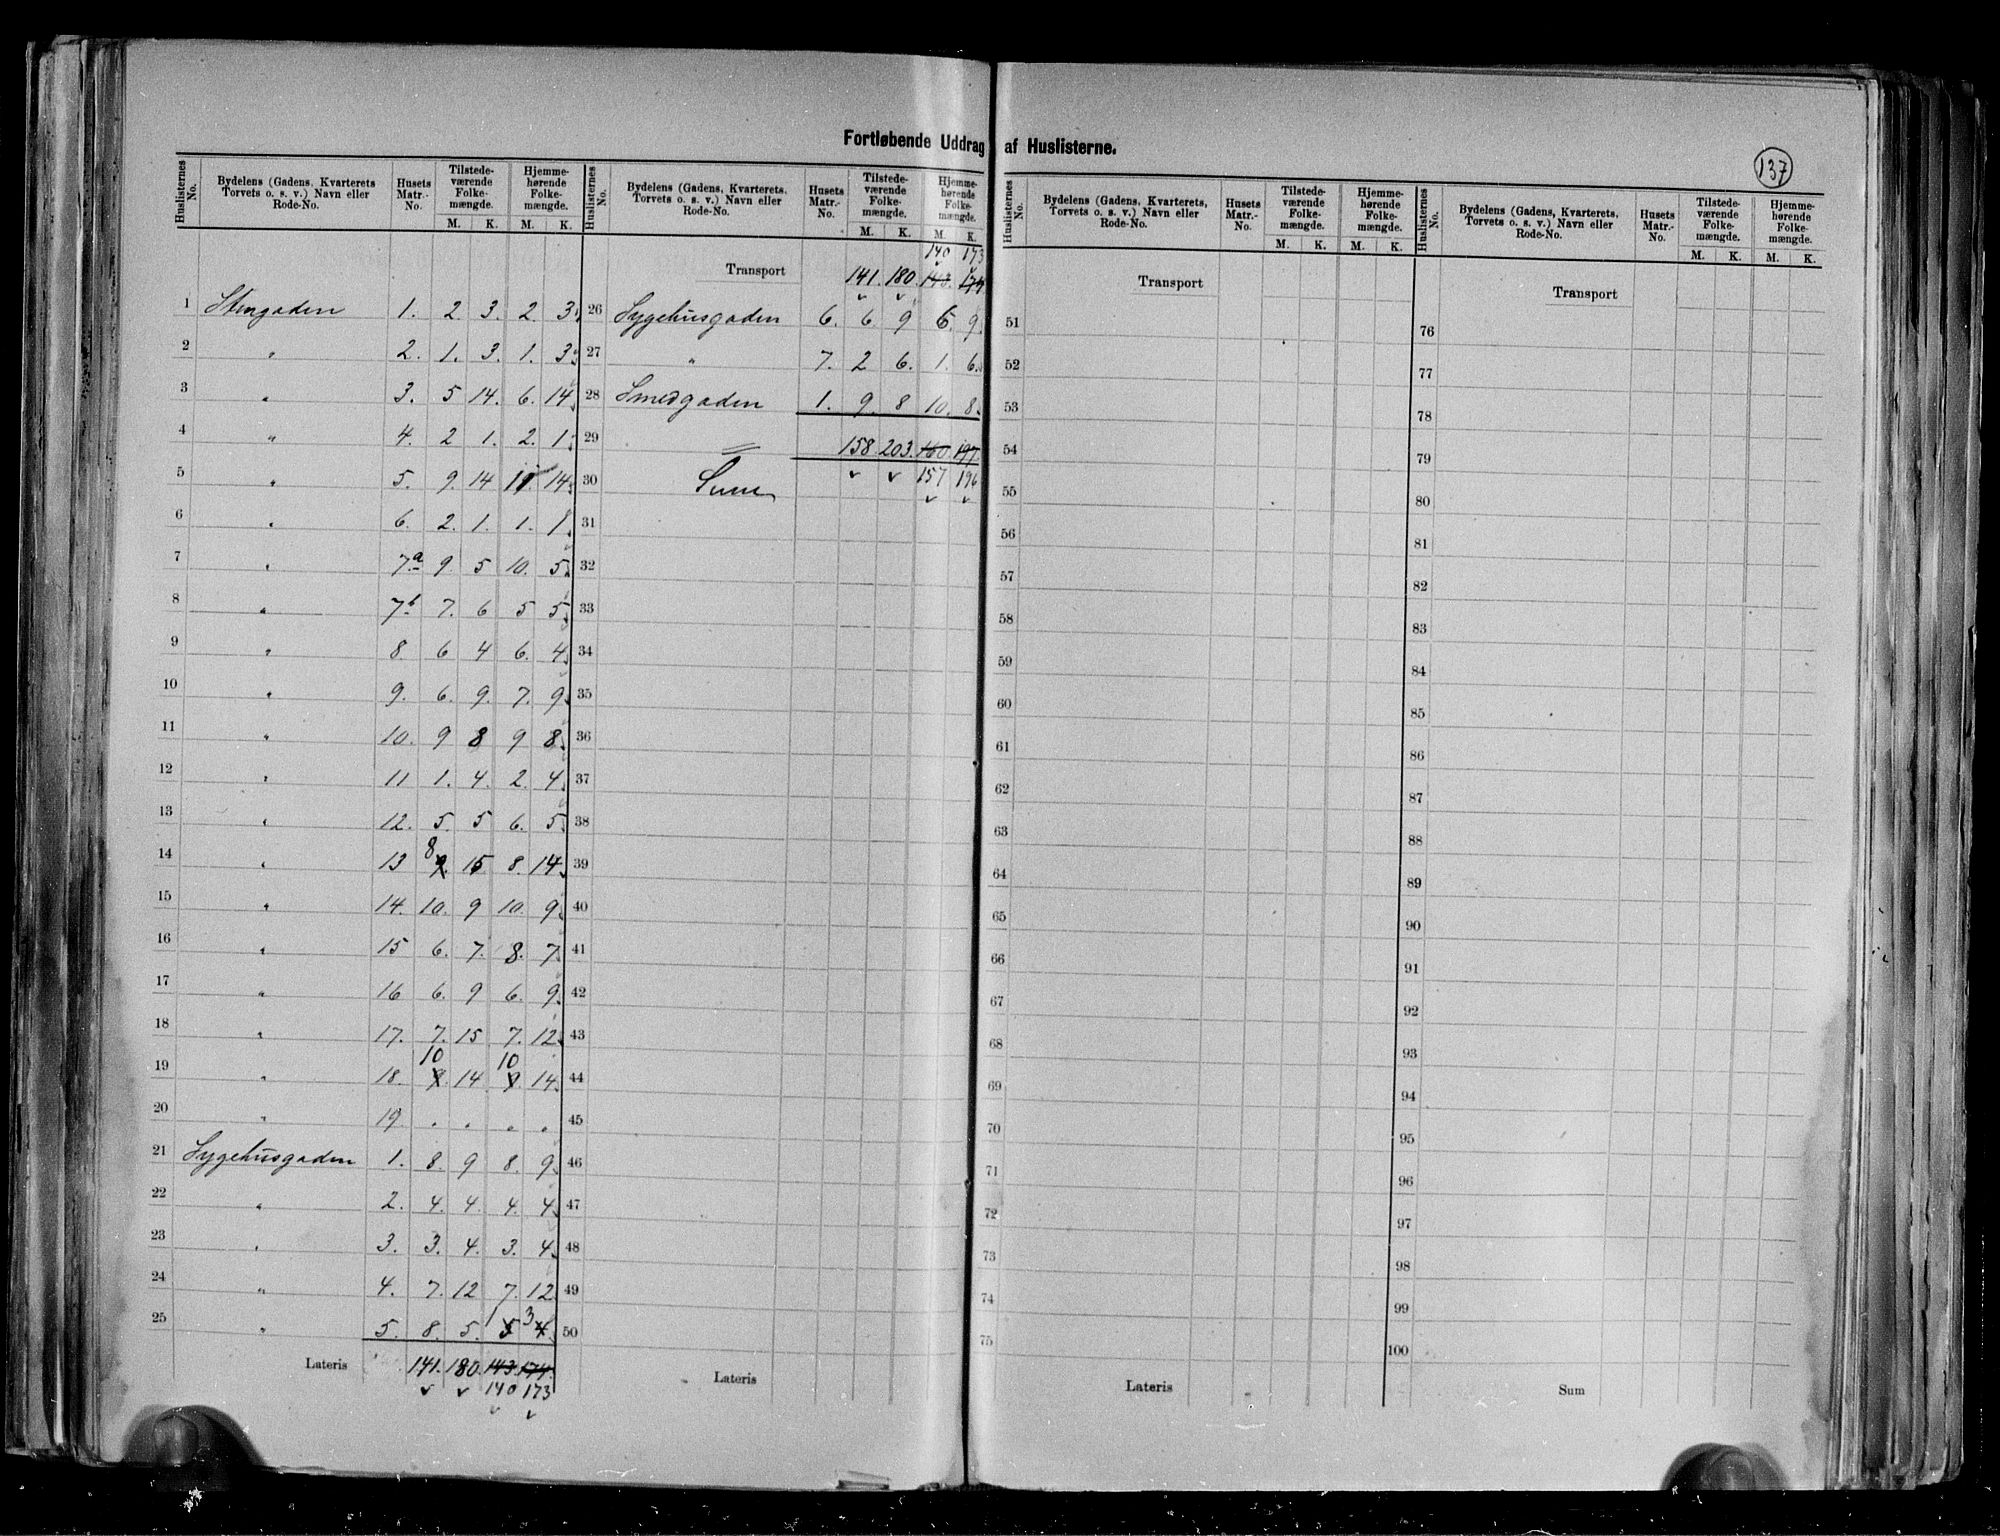 Fortløbende Uddrag af Huslisterne.
137
Huslisternes No. Bydelens (Gadens, Kvarterets Torvets o. s. v.) Navn eller Rode-No. Husets Matr.-No. Tilstedeværende Folkemængde. M. K. Hjemmehørende Folkemængde. M. K.
1 Stengaden 1. 2. 3. 2. 3.
2 " 2. 1. 3. 1. 3.
3 " 3. 5 14. 6. 14.
4 " 4. 2 1. 2. 1.
5 " 5. 9. 14 11 14.
6 " 6. 2. 1. 1. 1.
7 " 7.a 9. 5 10. 5.
8 " 7b 7. 6 5 5.
9 " 8. 6 4 6. 4.
10 " 9. 6. 9. 7. 9.
11 " 10. 9 8 9 8.
12 " 11 1. 4. 2 4.
13 " 12. 5. 5 6. 5.
14 " 13 8 9. 15 8. 14.
15 " 14. 10. 9 10. 9.
16 " 15 6. 7. 8. 7.
17 " 16 6. 9 6. 9.
18 " 17. 7. 15 7. 12.
19 " 18. 10 14 10 14.
20 " 19 . . . .
21 Sygehusgaden 1. 8. 9 8. 9.
22 " 2. 4. 4. 4. 4.
23 " 3. 3. 4. 3. 4.
24 " 4. 7. 12 7. 12.
25 " 5. 8. 5. 1 5 3 4.
Lateris 141. 180. 143. 174.
140 173
Huslisternes No. Bydelens (Gadens, Kvarterets, Torvets o. s. v.) Navn eller Rode-No. Husets Matr.-No. Tilstedeværende Folkemængde. M. K. Hjemmehørende Folkemængde. M. K.
140 173
Transport 141. 180. 143. 174
26 Sygehusgaden 6. 6. 9 6. 9.
27 " 7. 2 6. 1. 6.
28 Smedgaden 1. 9. 8 10. 8.
29 158. 203. 160. 197.
30 Sum 157 196
31
32
33
34
35
36
37
38
39
40
41
42
43
44
45
46
47
48
49
50
Lateris
Huslisternes No. Bydelens (Gadens, Kvarterets, Torvets o. s. v.) Navn eller Rode-No. Husets Matr.-No. Tilstedeværende Folkemængde. M. K. Hjemmehørende Folkemængde. M. K.
Transport
51
52
53
54
55
56
57
58
59
60
61
62
63
64
65
66
67
68
69
70
71
72
73
74
75
Lateris
Huslisternes No. Bydelens (Gadens, Kvarterets, Torvets o. s. v.) Navn eller Rode-No. Husets Matr.-No. Tilstedeværende Folkemængde. M. K. Hjemmehørende Folkemængde. M. K.
Transport
76
77
78
79
80
81
82
83
84
85
86
87
88
89
90
91
92
93
94
95
96
97
98
99
100
Sum